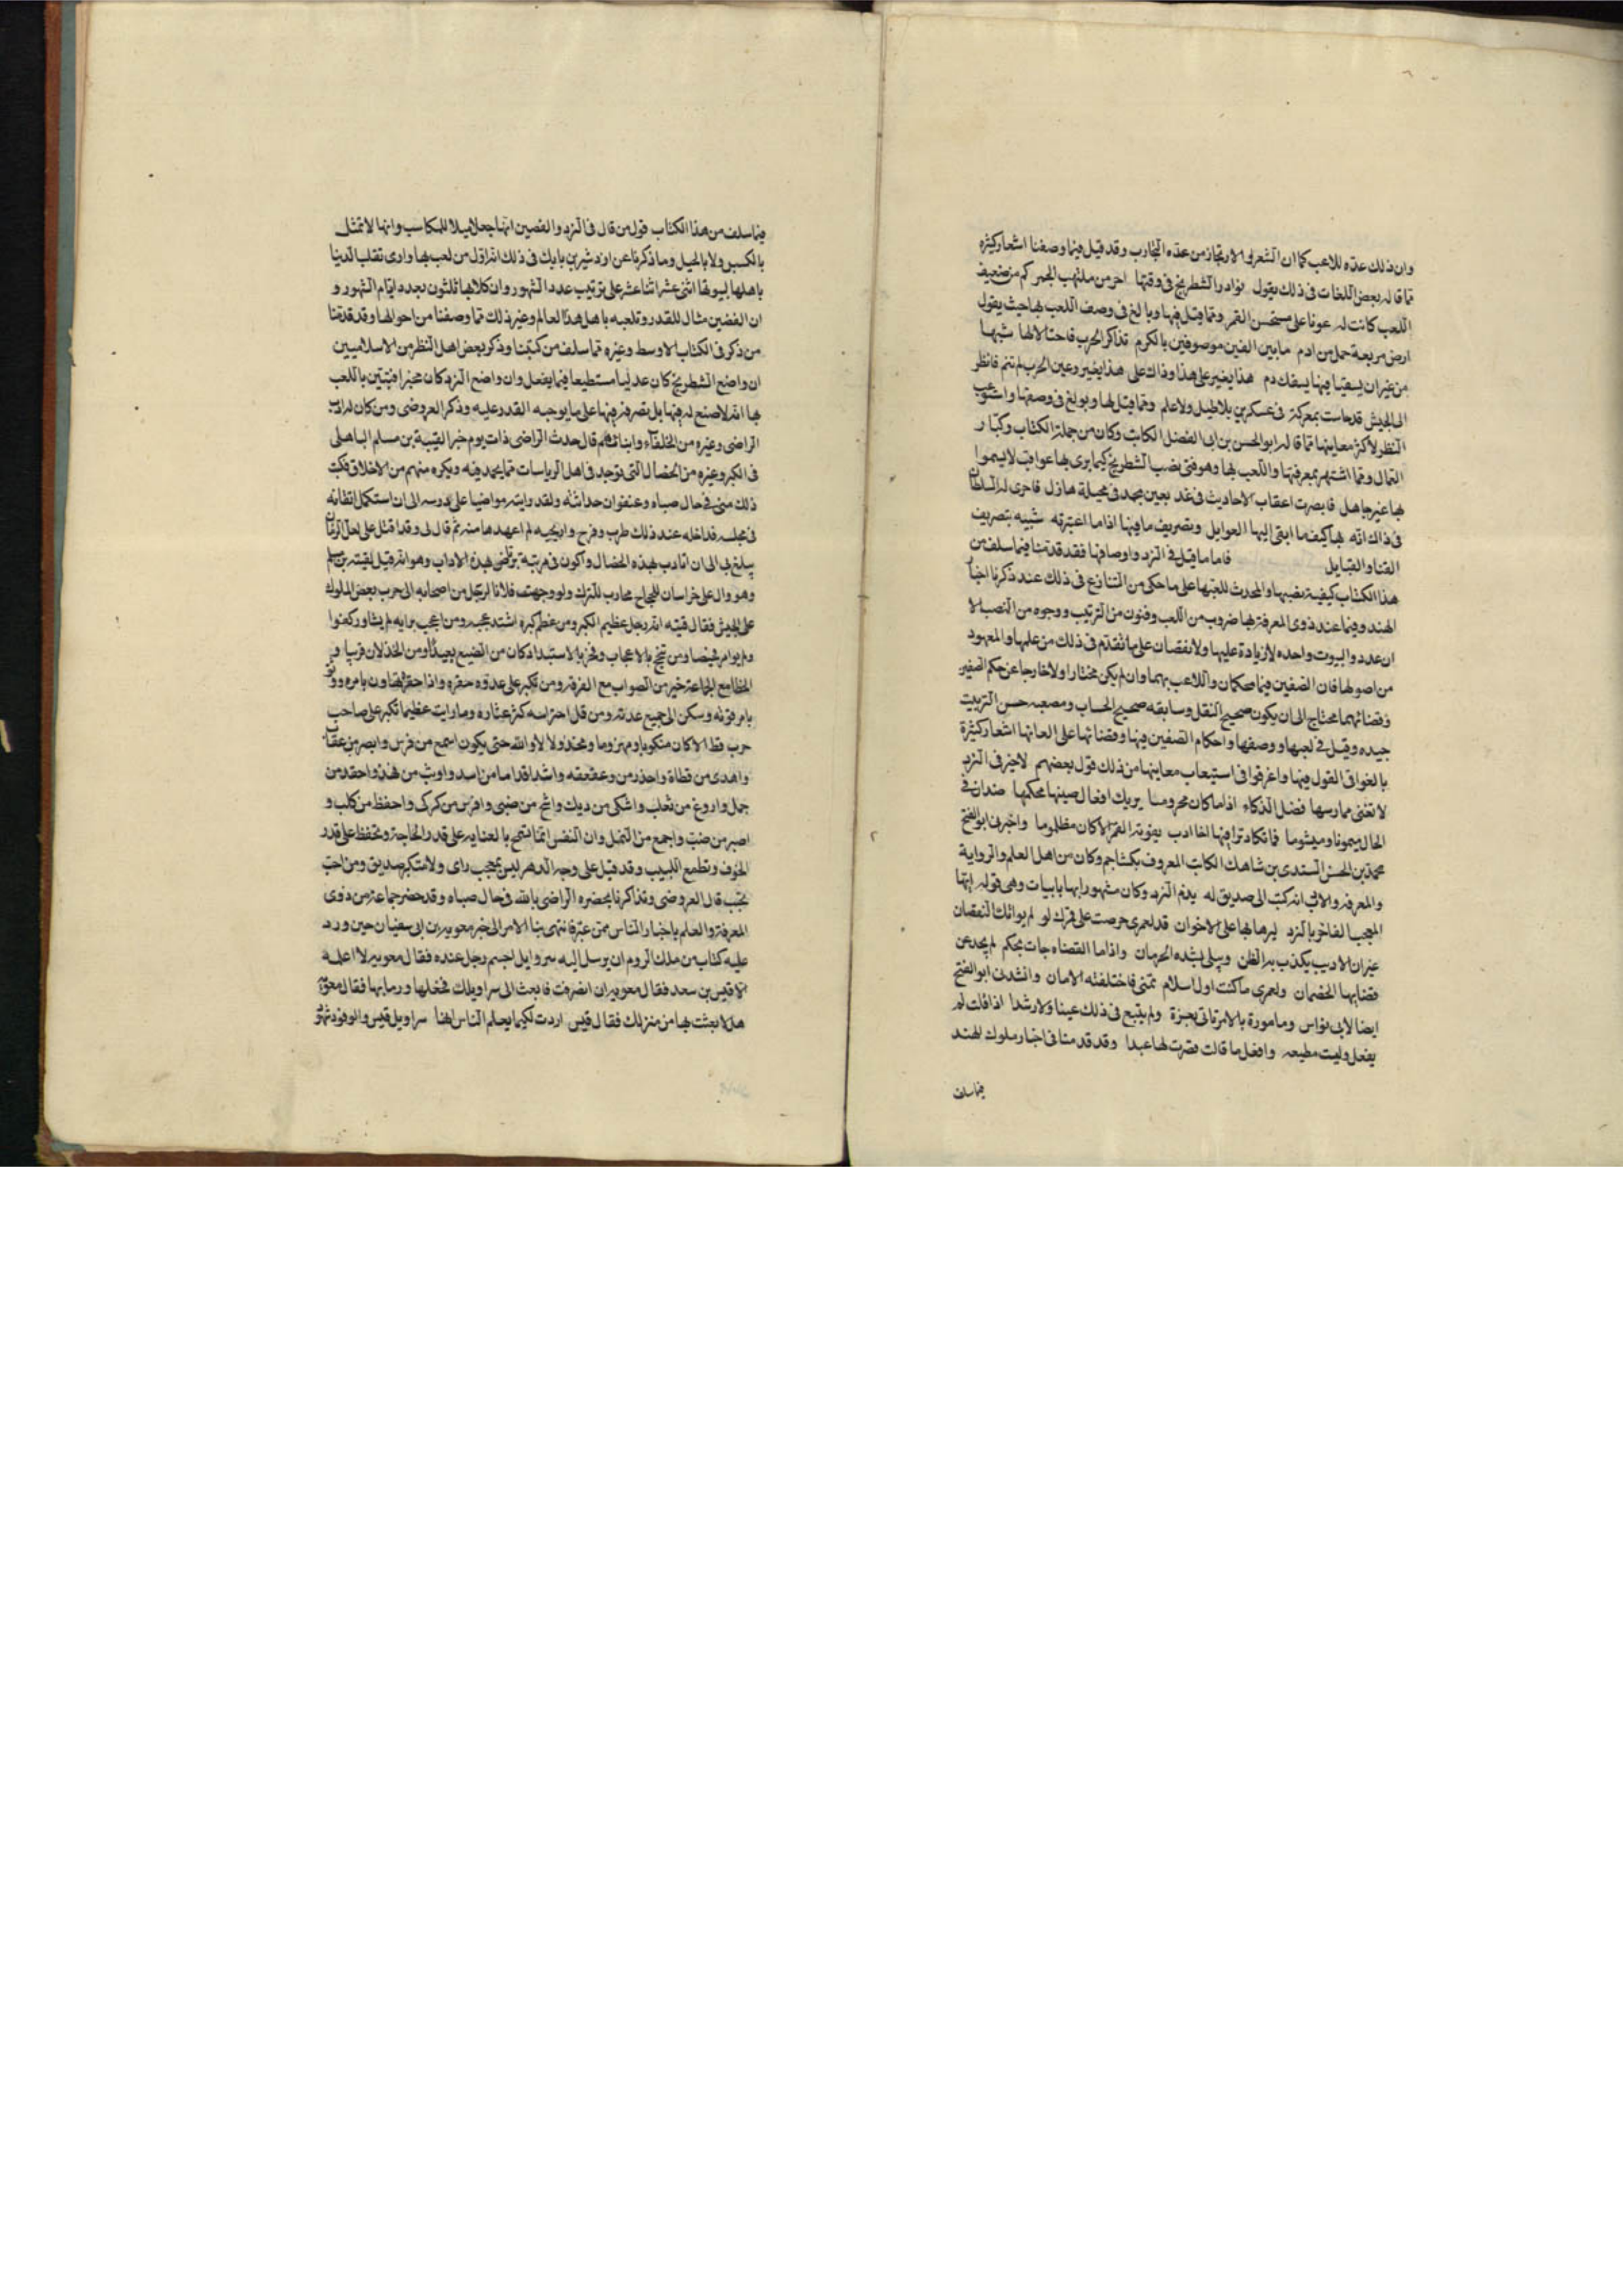 وان ذلك عدّه للاعب كما ان الشعر والارتجاز من عدّه المحارب وقد قيل فيما وصفنا اشعار كثيره
مما قاله بعض اللعاب فى ذلك يقول نوادر الشطرنج فى وقتها احر من ملتهب الجمر كم من ضعيف
اللعب كانت له عونا على مستحسن القمر ومما قيل فيها وبالغ فى وصف اللعب بها حيث يقول
ارض مربعة حمل من ادم مابين الفين موصوفين بالكرم تذاكرا الحرب فاحتالا لها شبها
من غير ان يسعيا فيها بسفك دم هذا يغير على هذا وذاك على هذا يغير وعين الحرب لم تنم فانظر
الى الجيش قد جاست بمعركة فى عسكرين بلا طبل ولا علم ومما قيل لها وبولغ فى وصفها واستوعب
النظر لاكثر معاينها مما قاله ابو الحسن بن ابى الفضل الكاتب وكان من جملة الكتاب وكبار
العمال ومما اشتهر بمعرفتها واللعب بها وهو فتى نصب الشطرنج كيما يرى بها عواقب لا يسموا
بها غير جاهل فابصرت اعقاب الاحاديث فى غد بعين مجد فى مخيلة هازل فاجرى له السلطان
فى ذاك انّه بها كيف ما ابتغى اليها الغوايل وتصريف مافيها اذا ما اعتبرته شبيه بتصريف
القنا والقبايل فاما ما قيل فى النرد واوصافها فقد قدمنا فيما سلف من
هذا الكتاب كيفية نصبها والمحدث للعبها على ما حكى من التنازع فى ذلك عند ذكرنا اخبار
الهند وفيما عند ذوى المعرفة بها ضروب من اللعب وفنون من الترتيب ووجوه من النصب الا
ان عدد البيوت واحده لا زيادة عليها ولا نقصان على ما تقدم فى ذلك من علمها والمعهود
من اصولها فان الفصين فيما محكمان واللاعب بهما وان لم يكن مختارا ولا خارجا عن حكم الفصين
وقضائهما محتاج الى ان يكون صحيح النقل وسابقه صحيح الحساب ومصعبه حسن الترتيب
جيده وقيل فى لعبها ووصفها واحكام الفصين فيها وقضائها على العابها اشعار كثيرة
بالغوا فى القول فيها واغرقوا فى استيعاب معاينها من ذلك قول بعضهم لا خير فى النرد
لا تغنى ممارسها فضل الذكاء اذا ما كان محروما يريك افعال فصيها بحكمها ضدان فى
الحال ميمونا وميشوما فما تكاد ترى فيها اخا ادب يفوته القمر الا كان مظلوما واخبرنى ابو الفتح
محمد بن الحسن السندى بن شاهك الكاتب المعروف بكشاجم وكان من اهل العلم والرواية
والمعرفة والادب انه كتب الى صديق له يذم النرد وكان مشهورا بها بابيات وهى قوله ايها
المعجب المفاخر بالنرد ليزها بها على الاخوان قد لعمرى حرصت على قمرك لو لم يواتك النقصان
غير ان الاديب يكذب به الظن ويبلى بشده الحرمان واذا ما القضاه جات بحكم لم يحد عن
قضايها الخصمان ولعمرى ما كنت اول انسان تمنى فاختلفته الامان وانشدنى ابو الفتح
ايضا لابى نواس ومامورة بالامر تاتى بغيرة ولم يتبع فى ذلك غيا ولا رشدا اذا قلت لم
يفعل وليست مطيعه وافعل ما قالت فصرت لها عبدا وقد قدمنا فى اخبار ملوك الهند
فيما سلف
فيما سلف من هذا الكتاب قول من قال فى النرد والفصين انها جعلا مثلا للمكاسب وانها لا تمثل
بالكسبن ولا بالحيل وما ذكرنا عن اردشير بن بابك فى ذلك انه اول من لعب بها وارى تقلب الدنيا
باهلها بيوتها اثنى عشر اثنا عشر على ترتيب عدد الشهور وان كلابها ثلثون بعدد ايام الشهور و
ان الفصين مثال للقدر وتلعبه باهل هذا العالم وغير ذلك مما وصفنا من احوالها وقد قدمنا
من ذكر فى الكتاب الاوسط وغيره مما سلف من كتبنا وذكر بعض اهل النظر من الاسلاميين
ان واضع الشطرنج كان عدليا مستطيعا فيما يفعل وان واضع النرد كان مجبرا فتبين باللعب
بها انه لا صنع له فيها بل تصرفه فيها على ما يوجبه القدر عليه وذكر العروضى ومن كان له ادب
الراضى وغيره من الخلفاء وابنائهم قال حدث الراضى ذات يوم خبر القتيبة بن مسلم الباهلى
فى الكبر وغيره من الخصال التى توجد فى اهل الرياسات مما يحمد فيه ويكره منهم من الاخلاق فكتب
ذلك منى فى حال صباه وعنفوان حداثته ولقد رايته مواضبا على درسه الى ان استكمل اتقانه
فى مجلسه فداخله عند ذلك طرب وفرح واريحيه لم اعهدها منه ثم قال لى وقد اقبل على لعل الزمان
يبلغ بى الى ان اتادب بهذه الخصال واكون فى مرتبة ترتضى هذه الاداب وهو انه قيل لقتيبة بن مسلم
وهو وال على خراسان للحجاج محارب للترك ولو وجهت فلانا لرجل من اصحابه الى حرب بعض الملوك
على الجيش فقال قتيبه انه رجل عظيم الكبر ومن عظم كبره اشتد عجبه ومن اعجب برايه لم يشاور كفوا
ولم يوامر نصيحا ومن تبجح بالاعجاب وفخر بالاستبداد كان من الصنع بعيدا ومن الخذلان قريبا و
الخطا مع الجماعة خير من الصواب مع الفرقة ومن تكبر على عدوه حقره واذا حقره تهاون بامره ووثق
بامر قوته وسكن الى جميع عدته ومن قل احتراسه كثر عثاره وما رايت عظيما تكبر على صاحب
حرب قط الا كان منكوبا ومهزوما ومخذولا لا والله حتى يكون اسمع من فرس وابصر من عقاب
واهدى من قطاة واحذر من وعقعقه واشد اقداما من اسد واوثب من فهد واحقد من
جمل واروغ من ثعلب واشكى من ديك واشح من ضبى وافرس من كركى واحفظ من كلب و
اصبر من ضب واجمع من النمل وان النفس انما تسمح بالعنايه على قدر الحاجة وتحفظ على قدر
الخوف وتطمع اللبيب وقد قيل على وجه الدهر ليس بمعجب راى ولا متكبر صديق ومن احب
تحبب قال العروضى وتذاكرنا بحضره الراضى بالله فى حال صباه وقد حضر جماعة من ذوى
المعرفة والعلم باخبار الناس ممن عبر فانتهى بنا الامر الى خبر معويه بن ابى سفيان حين ورد
عليه كتاب من ملك الروم ان يرسل اليه سروايل لجسم رجل عنده فقال معويه لا اعلمه
الا قيس بن سعد فقال معويه ان انصرفت فابعث الى سراويلك فخلعها ورما بها فقال معويه
هلا بعثت بها من منزلك فقال قيس اردت لكيما يعلم الناس انها سراويل قيس والوفود شهود